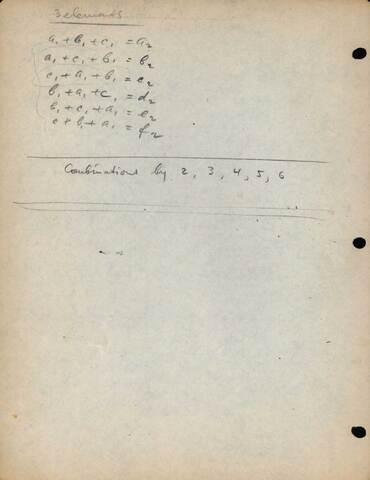 3 elements
a₁ + b₁ + c₁ = a₂
a₁ + c₁ + b₁ = b₂
c₁ + a₁ + b₁ = c₂
b₁ + a₁ + c₁ = d₂
b₁ + c₁ + a₁ = e₂
c + b₁ + a₁ = f₂
Combinations by 2, 3, 4, 5, 6